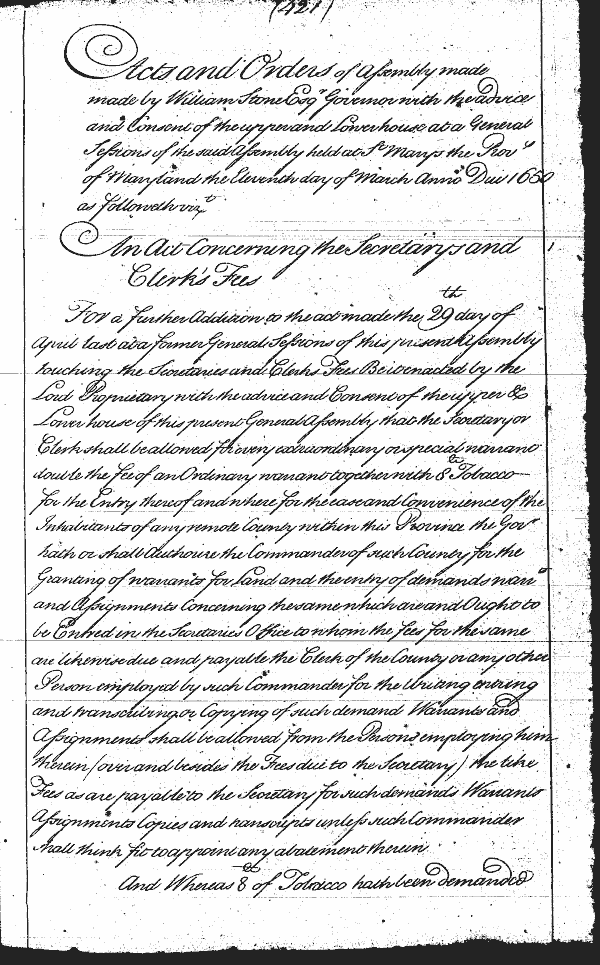 (421)
Acts and Orders of Assembly made
made by William Stone Esqr Governor with the advice
and Consent of the upper and Lower house at a General
Sessions of the said Assembly held at St Marys the Prov
of Maryland the Eleventh day of March Anno Dni 1650
as followeth vizt
An Act Concerning the Secretarys and
Clerk's Fees
For a further Addition to the act made the 29th day of
April last at a former General Sessions of this present Assembly
touching the Secretaries and Clerks Fees Be it enacted by the
Lord Proprietary with the advice and Consent of the upper &
Lower house of this present General Assembly that the Secretary or
Clerk shall be allowed for every extraordinary or special warrant
double the fee of an Ordinary warrant together with 8 lb Tobacco
for the Entry thereof and where for the ease and Convenience of the
Inhabitants of any remote County within this Province the Govr
hath or shall Authorize the Commander of such County for the
Granting of warrants for Land and the entry of demands warrts
and Assignments Concerning the same which are and Ought to
be Entred in the Secretaries Office to whom the fees for the same
are likewise due and payable the Clerk of the County or any other
Person employed by such Commander for the Writing entring
and transcribing or Copying of such demand Warrants and
Assignments shall be allowed from the Persons employing him
therein (over and besides the Fees due to the Secretary) the like
Fees as are payable to the Secretary for such demands Warrants
Assignments Copies and transcripts unless such Commander
shall think fit to appoint any abatement therein
And Whereas 8 lb of Tobacco hath been demanded